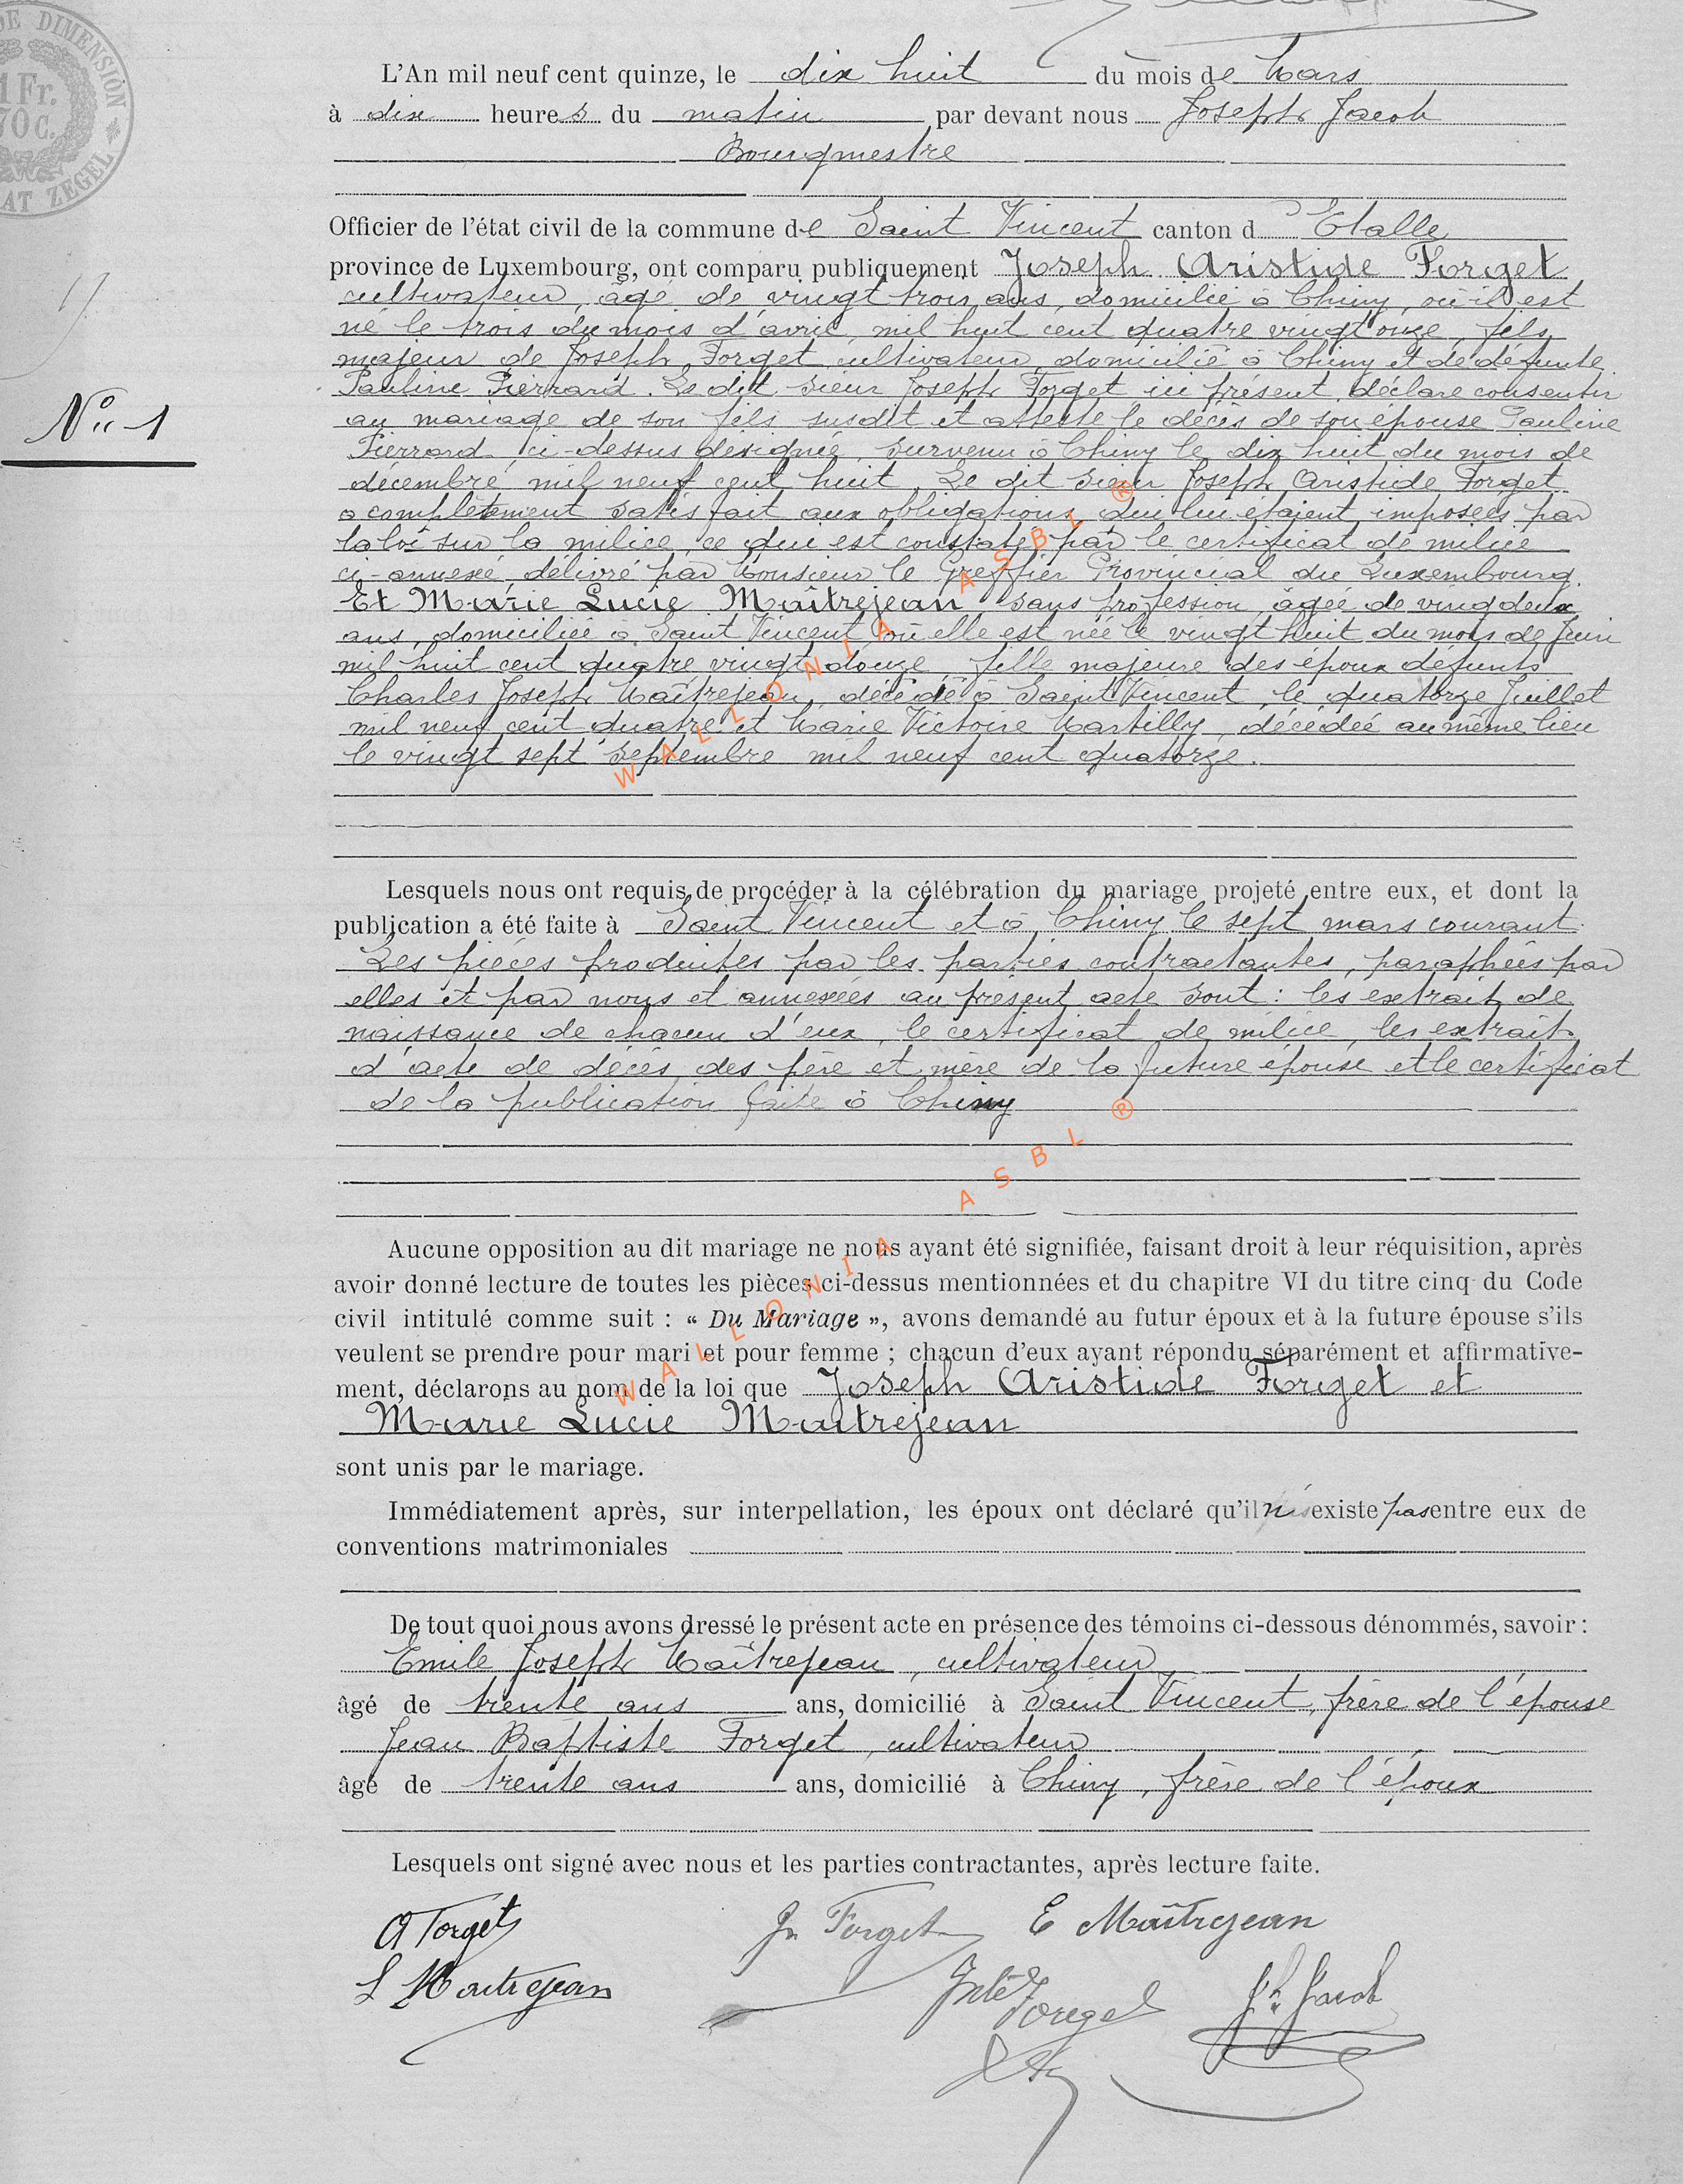 DE DIMENSION
1 Fr.
70 C.
AT ZEGEL
L'An mil neuf cent quinze, le dix huit du mois de Mars
à dix heures du matin par devant nous Joseph Jacob
Bourgmestre
Officier de l'état civil de la commune de Saint Vincent canton d'Etalle
province de Luxembourg, ont comparu publiquement Joseph Aristide Forget
cultivateur, âgé de vingt trois ans, domicilié à Chiny, où il est
né le trois du mois d'avril mil huit cent quatre vingt onze, fils
majeur de Joseph Forget cultivateur domicilié à Chiny et de défunte
Pauline Pierrard. Le dit sieur Joseph Forget ici présent déclare consentir
N° 1
au mariage de son fils susdit et atteste le décès de son épouse Pauline
Pierrard ci-dessus désignée, survenu à Chiny le dix huit du mois de
décembre mil neuf cent huit. Le dit sieur Joseph Aristide Forget
a complètement satisfait aux obligations qui lui étaient imposées par
la loi sur la milice, ce qui est constaté par le certificat de milice
ci-annexé, délivré par Monsieur le Greffier Provincial du Luxembourg.
Et Marie Lucie Maîtrejean, sans profession, âgée de vingt deux
ans, domiciliée à Saint Vincent où elle est née le vingt huit du mois de Juin
mil huit cent quatre vingt douze, fille majeure des époux défunts
Charles Joseph Maîtrejean, décédé à Saint Vincent, le quatorze Juillet
mil neuf cent quatre et Marie Victoire Martilly, décédée au même lieu
le vingt sept septembre mil neuf cent quatorze.
WALLONIA ASBL ®
Lesquels nous ont requis de procéder à la célébration du mariage projeté entre eux, et dont la
publication a été faite à Saint Vincent et à Chiny le sept mars courant.
Les pièces produites par les parties contractantes, paraphées par
elles et par nous et annexées au présent acte sont : les extraits de
naissance de chacun d'eux, le certificat de milice, les extraits
d'acte de décès des père et mère de la future épouse et le certificat
de la publication faite à Chiny
WALLONIA ASBL ®
Aucune opposition au dit mariage ne nous ayant été signifiée, faisant droit à leur réquisition, après
avoir donné lecture de toutes les pièces ci-dessus mentionnées et du chapitre VI du titre cinq du Code
civil intitulé comme suit : « Du Mariage », avons demandé au futur époux et à la future épouse s'ils
veulent se prendre pour mari et pour femme ; chacun d'eux ayant répondu séparément et affirmative-
ment, déclarons au nom de la loi que Joseph Aristide Forget et
Marie Lucie Maitrejean
sont unis par le mariage.
Immédiatement après, sur interpellation, les époux ont déclaré qu'il n'existe pas entre eux de
conventions matrimoniales
De tout quoi nous avons dressé le présent acte en présence des témoins ci-dessous dénommés, savoir :
Emile Joseph Maîtrejean, cultivateur
âgé de trente ans ans, domicilié à Saint Vincent, frère de l'épouse
Jean Baptiste Forget, cultivateur
âgé de trente ans ans, domicilié à Chiny, frère de l'époux
Lesquels ont signé avec nous et les parties contractantes, après lecture faite.
A Forget Jh Forget E Maîtrejean
L Maitrejean Forget Jh Jacob